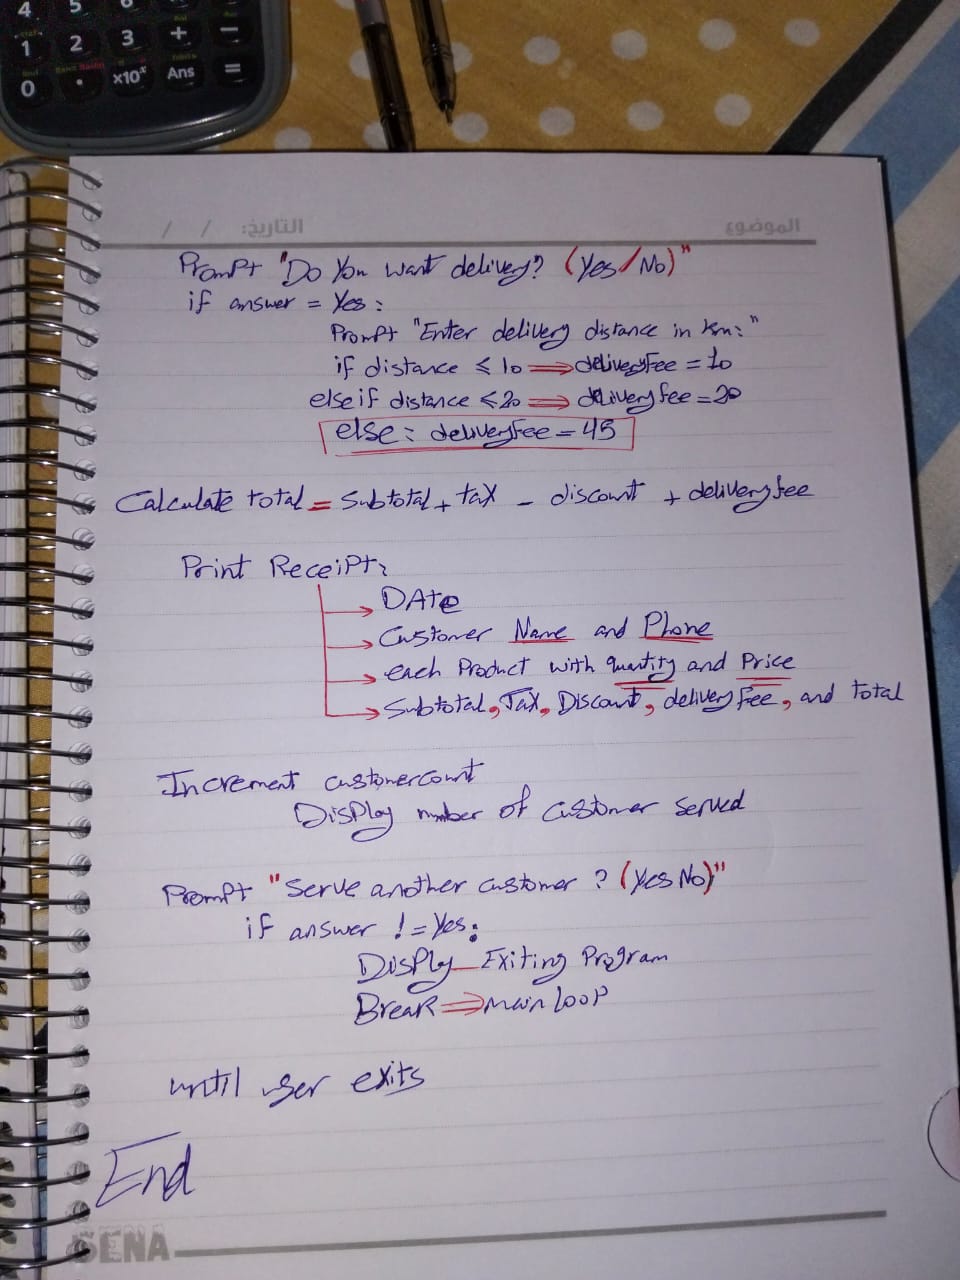 4 5 6
1 2 3 + −
0 • ×10ˣ Ans =
التاريخ: / / الموضوع
Prompt "Do You want delivery? (Yes/No)"
if answer = Yes:
Prompt "Enter delivery distance in Km:"
if distance ≤ 10 ⇒ deliveryFee = 10
else if distance ≤ 20 ⇒ deliveryfee = 20
else: deliveryFee = 45
Calculate total = Subtotal + tax - discount + deliveryfee
Print Receipt:
→ DAte
→ Customer Name and Phone
→ each Product with quantity and Price
→ Subtotal, Tax, Discount, delivery Fee, and total
Increment customercount
Display number of customer served
Prompt "Serve another customer? (Yes No)"
if answer != Yes:
Display Exiting Program
Break ⇒ main loop
until user exits
End
SENA